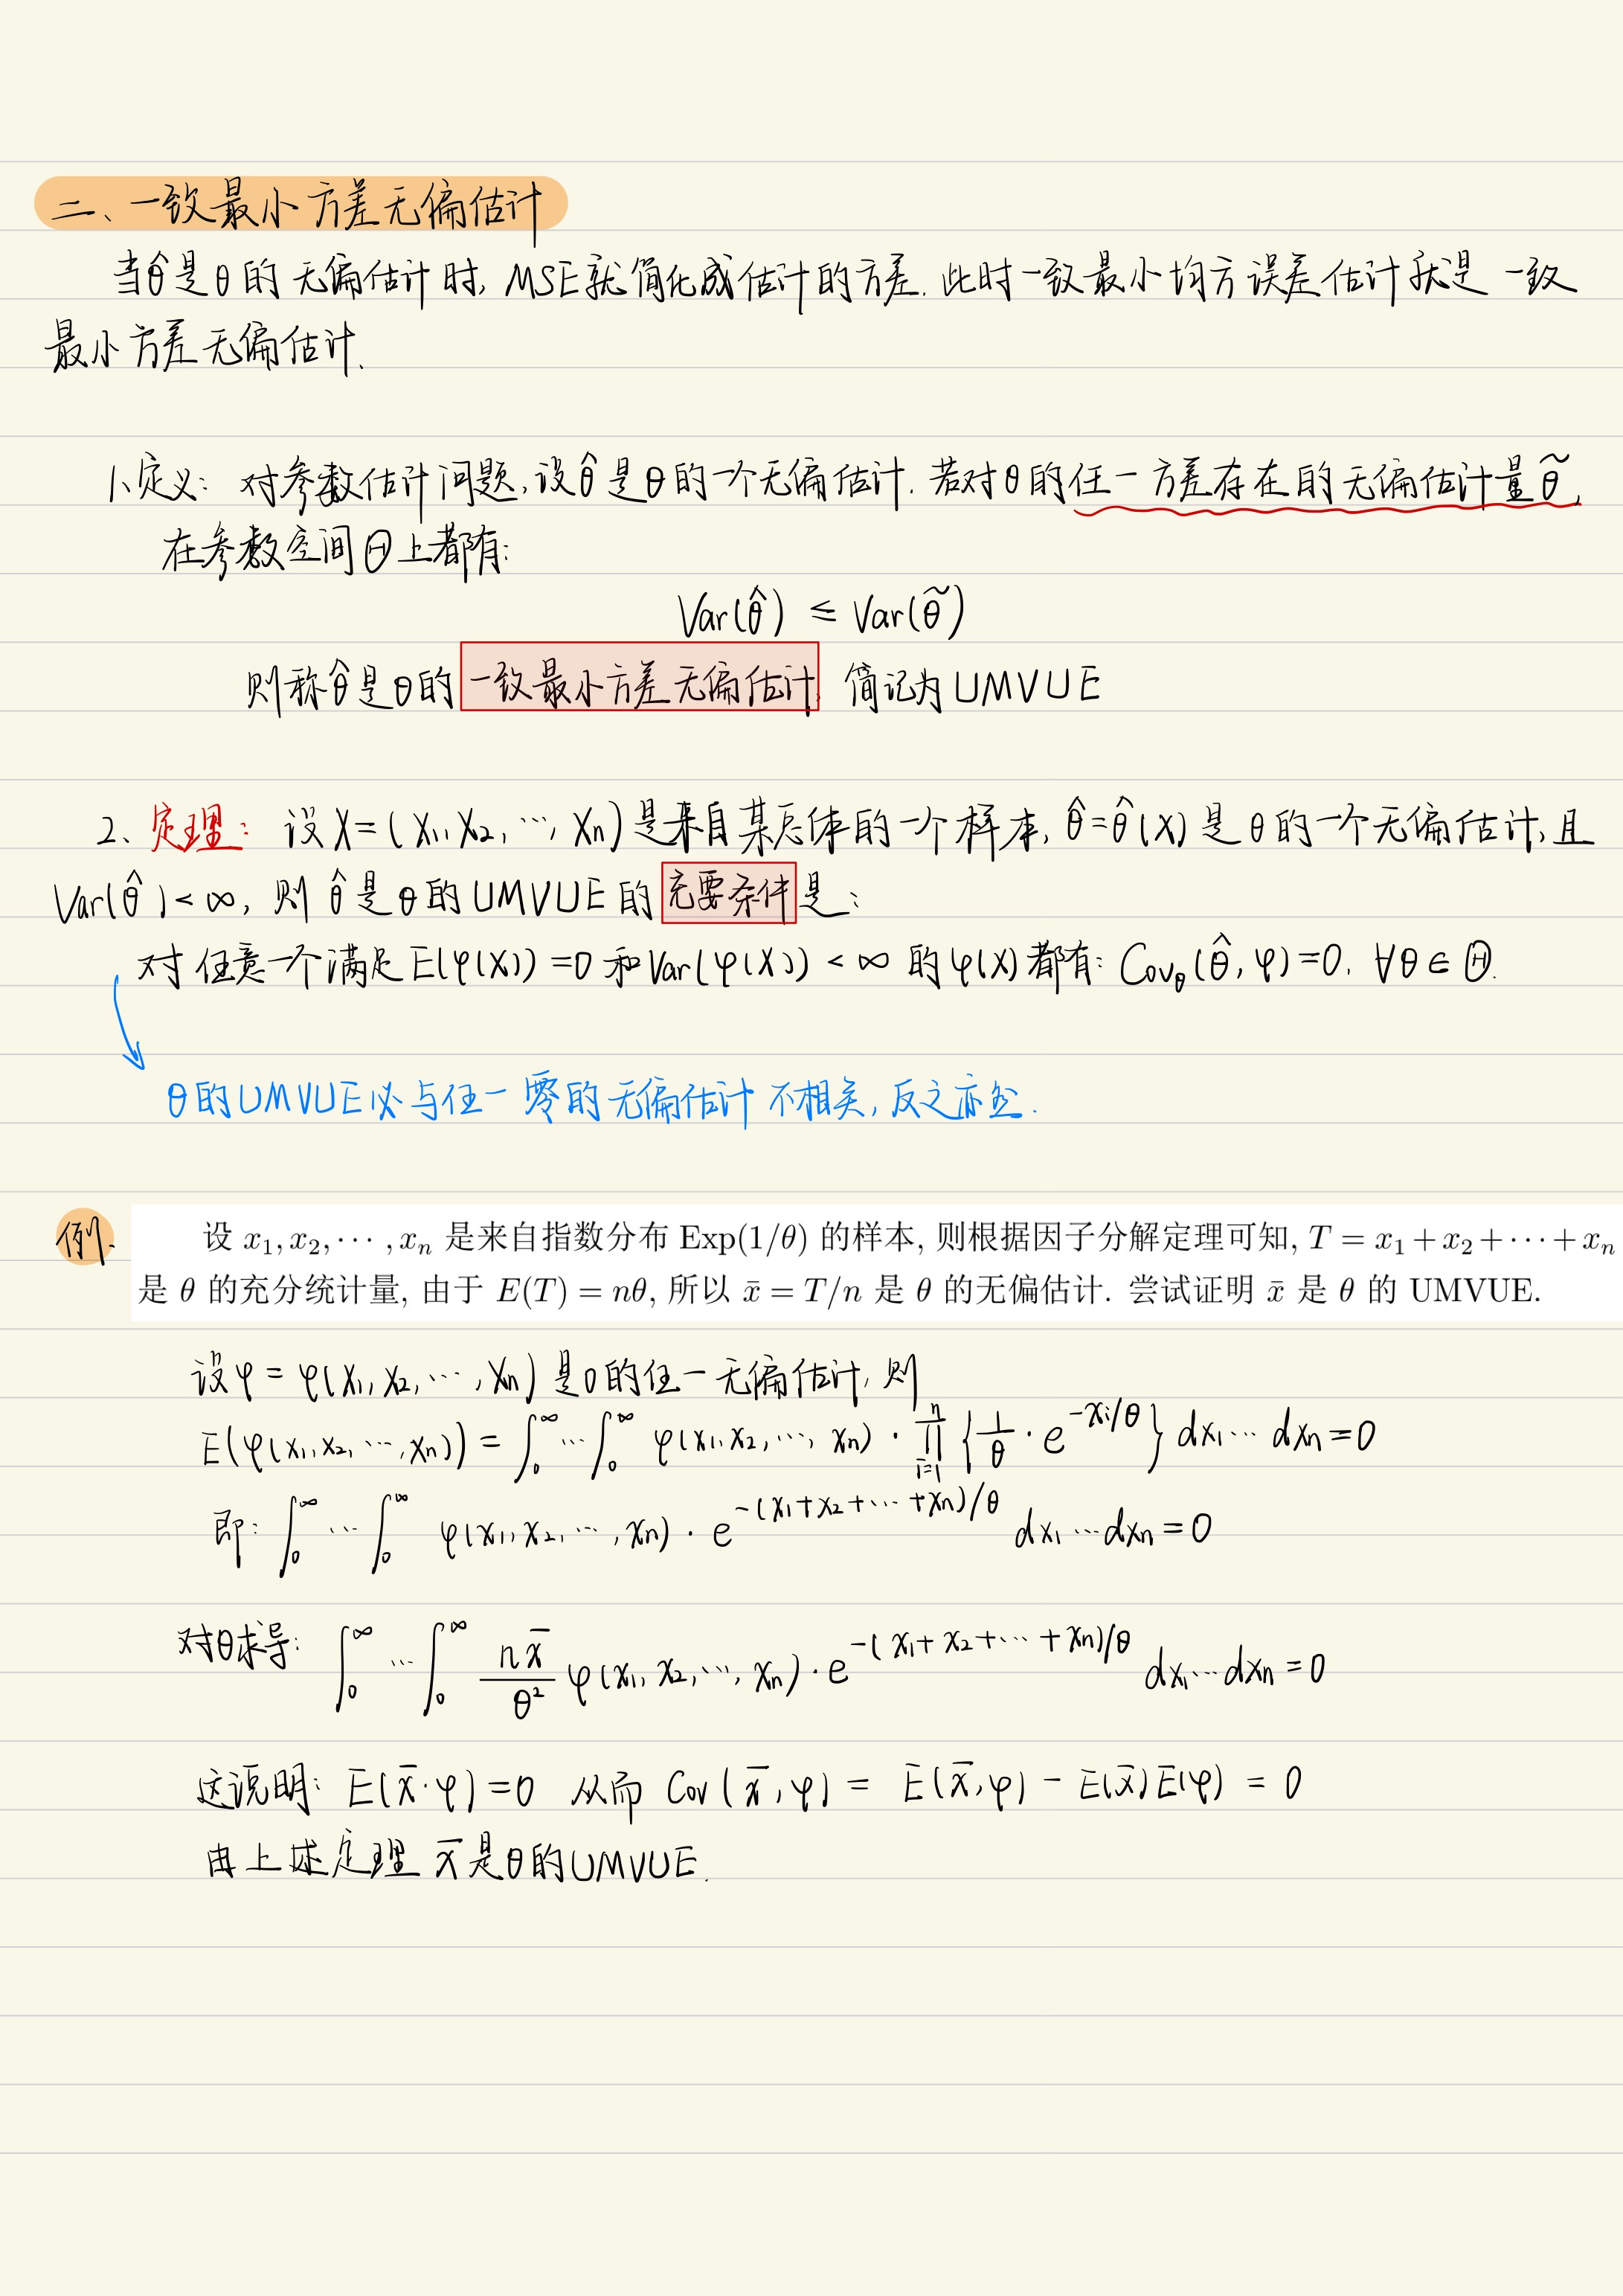 二、一致最小方差无偏估计
当θ̂是θ的无偏估计时, MSE就简化成估计的方差. 此时一致最小均方误差估计就是一致
最小方差无偏估计.
1、定义: 对参数估计问题, 设θ̂是θ的一个无偏估计. 若对θ的任一方差存在的无偏估计量θ̃,
在参数空间Θ上都有:
Var(θ̂) ≤ Var(θ̃)
则称θ̂是θ的一致最小方差无偏估计, 简记为UMVUE
2、定理: 设X=(X₁,X₂,⋯,Xn)是来自某总体的一个样本, θ̂=θ̂(X)是θ的一个无偏估计, 且
Var(θ̂)<∞, 则θ̂是θ的UMVUE的充要条件是:
对任意一个满足E(φ(X))=0和Var(φ(X))<∞的φ(X)都有: Covθ(θ̂,φ)=0, ∀θ∈Θ.
θ的UMVUE必与任一零的无偏估计不相关, 反之亦然.
例. 设 x₁, x₂, ⋯ , xn 是来自指数分布 Exp(1/θ) 的样本, 则根据因子分解定理可知, T = x₁ + x₂ + ⋯ + xn
是 θ 的充分统计量, 由于 E(T) = nθ, 所以 x̄ = T/n 是 θ 的无偏估计. 尝试证明 x̄ 是 θ 的 UMVUE.
设φ = φ(x₁,x₂,⋯,xn)是0的任一无偏估计, 则
E(φ(x₁,x₂,⋯,xn)) = ∫₀^∞⋯∫₀^∞ φ(x₁,x₂,⋯,xn)·∏_{i=1}^{n} {1/θ · e^{-xi/θ}} dx₁⋯dxn=0
即: ∫₀^∞⋯∫₀^∞ φ(x₁,x₂,⋯,xn)·e^{-(x₁+x₂+⋯+xn)/θ} dx₁⋯dxn=0
对θ求导: ∫₀^∞⋯∫₀^∞ nx̄/θ² φ(x₁,x₂,⋯,xn)·e^{-(x₁+x₂+⋯+xn)/θ} dx₁⋯dxn=0
这说明: E(x̄·φ)=0 从而 Cov(x̄,φ) = E(x̄,φ) - E(x̄)E(φ) = 0
由上述定理 x̄是θ的UMVUE.